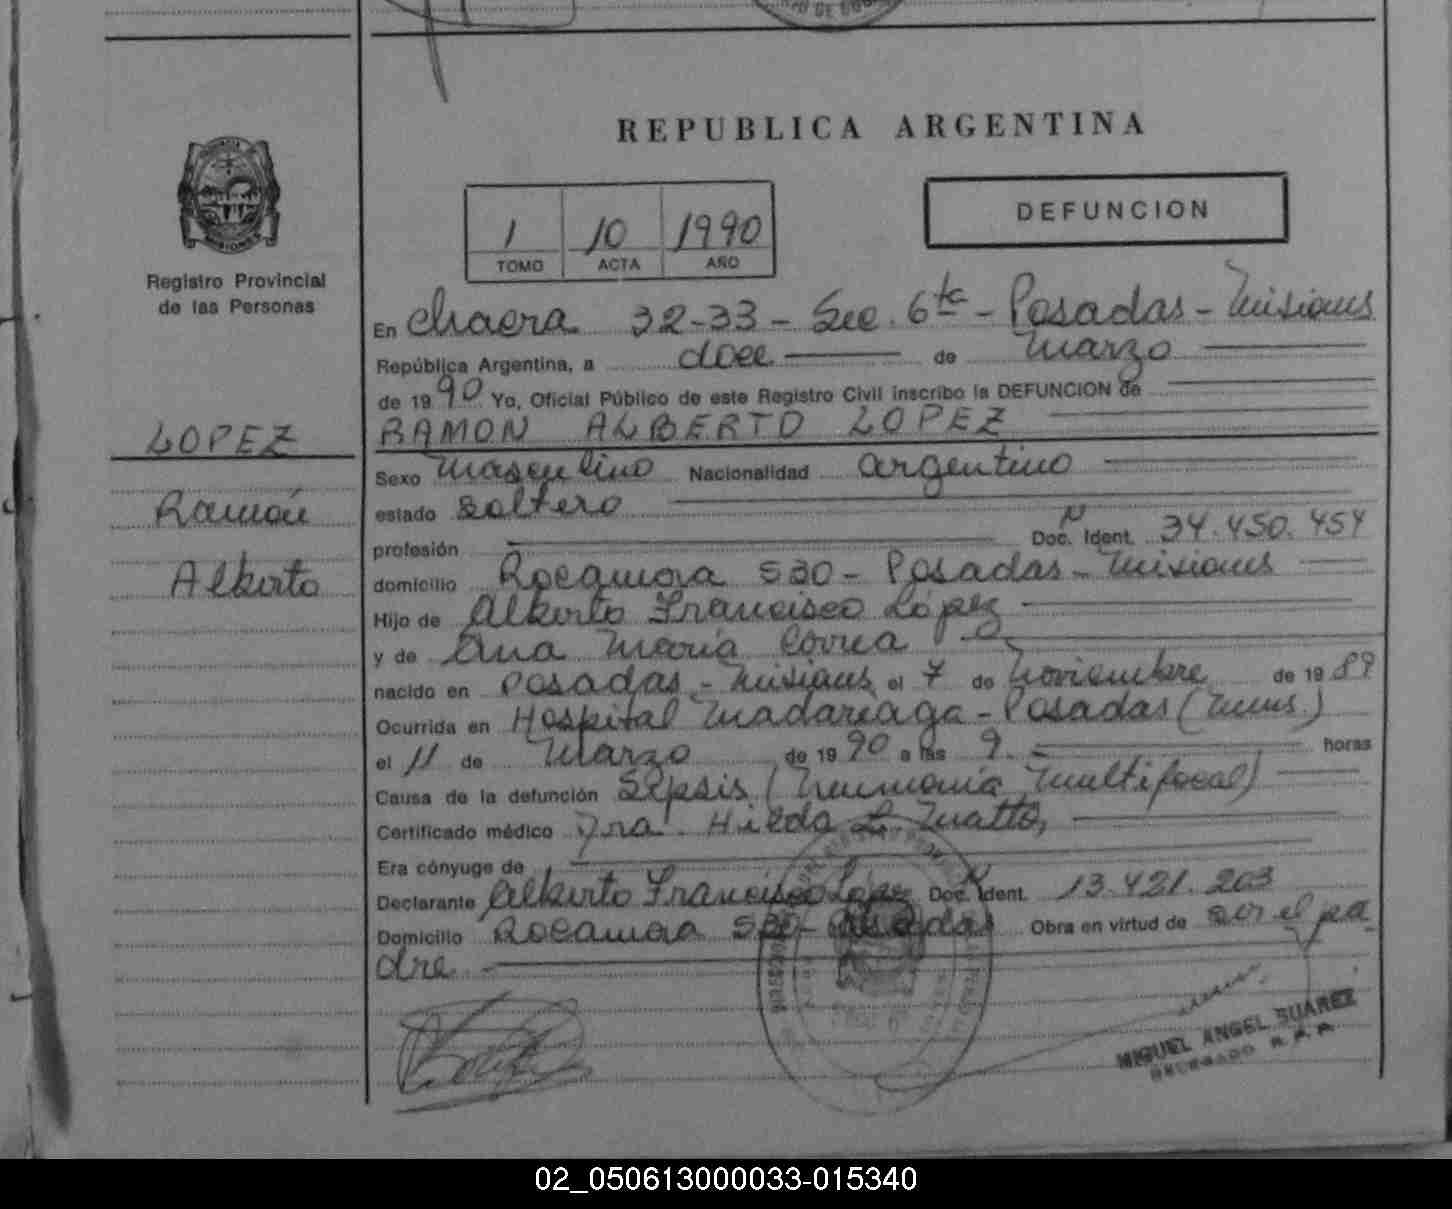 REPUBLICA ARGENTINA
1 10 1990
TOMO ACTA AÑO
DEFUNCION
MISIONES
Registro Provincial
de las Personas
LOPEZ
Ramón
Alberto
En chacra 32-33 - Sec. 6ta - Posadas - Misiones
República Argentina, a doce de Marzo
de 1990 Yo, Oficial Público de este Registro Civil inscribo la DEFUNCION de
RAMON ALBERTO LOPEZ
Sexo Masculino Nacionalidad argentino
estado soltero
profesión Doc. Ident. 34.450.454
domicilio Rocamora 530 - Posadas - Misiones
Hijo de Alberto Francisco López
y de Ana María Correa
nacido en Posadas - Misiones el 7 de Noviembre de 1989
Ocurrida en Hospital Madariaga - Posadas (Mnes.)
el 11 de Marzo de 1990 a las 9. horas
Causa de la defunción Sepsis (Neumonía Multifocal)
Certificado médico Dra. Hilda Matto,
Era cónyuge de
Declarante Alberto Francisco López Doc. Ident. 13.421.203
Domicilio Rocamora 530 - Posadas Obra en virtud de ser el pa
dre
MIGUEL ANGEL SUAREZ
DELEGADO R. P. P.
02_050613000033-015340